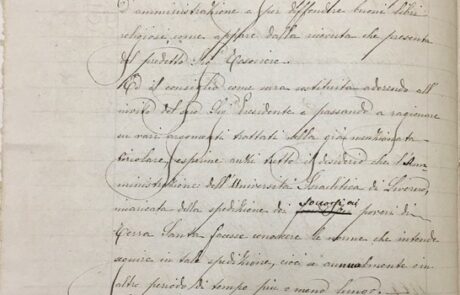 d'amministrazione e per diffondere buoni libri
religiosi come appare dalla ricevuta che presenta
il predetto Sig.r Tesoriere.
Ed il consiglio come sora costituito aderendo all'
invito del suo Sig.r Presidente e passando a ragionare
su vari argomenti trattati della già menzionata
circolare, esprime anzi tutto il desiderio che l'Am=
ministrazione dell'Università Israelitica di Livorno,
incaricata della spedizione dei poveri di
Terra Santa facesse conoscere le somme che intende
avere in tale spedizione, cioè se annualmente o in
altro periodo di tempo più o meno lungo